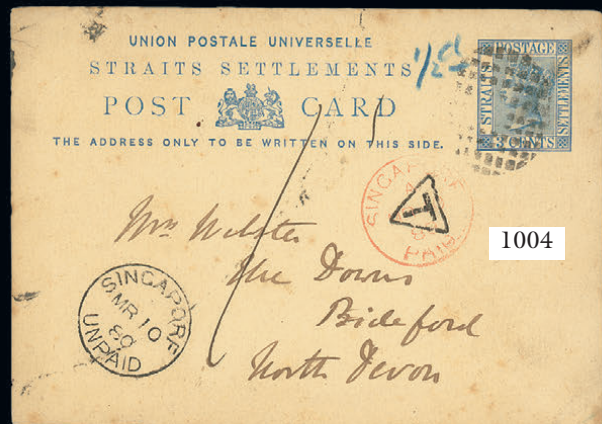 UNION POSTALE UNIVERSELLE
STRAITS SETTLEMENTS
POST CARD
THE ADDRESS ONLY TO BE WRITTEN ON THIS SIDE.
1/2d
POSTAGE
STRAITS
SETTLEMENTS
3 CENTS
SINGAPORE
PAID
T
1004
Mrs Webster
The Downs
Bideford
North Devon
SINGAPORE
MR 10
80
UNPAID